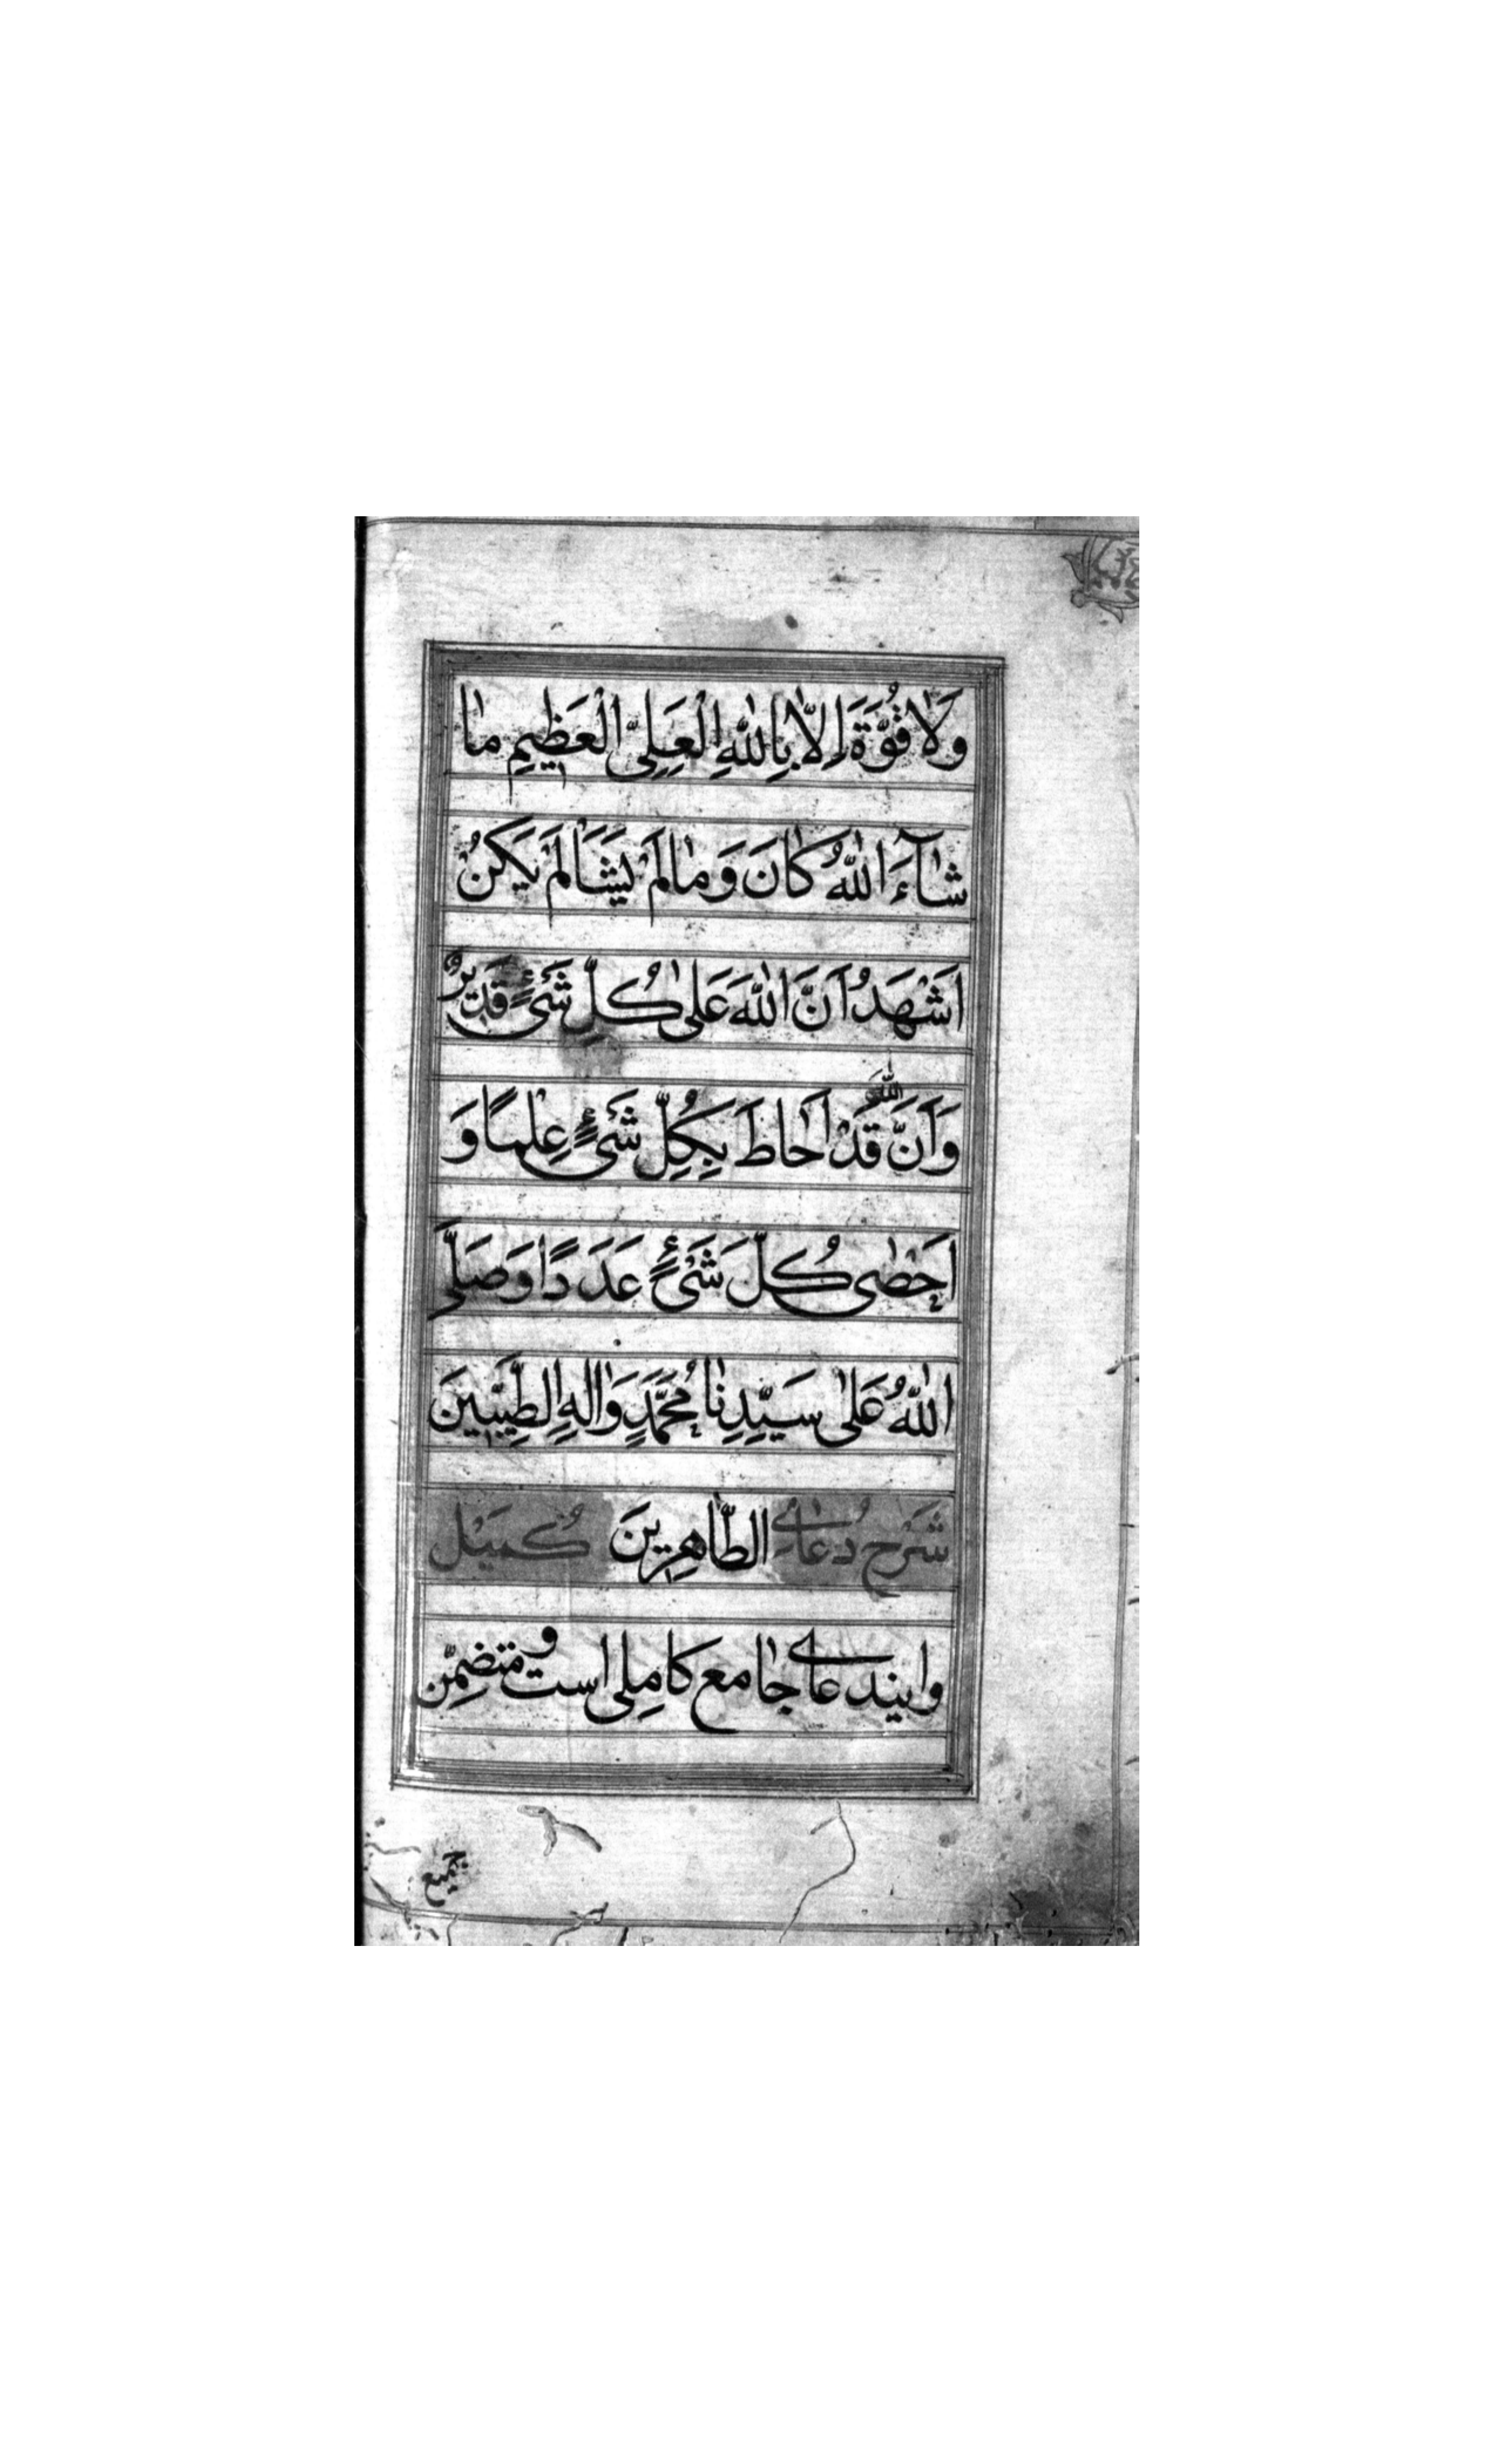 وَلاٰ قُوَّةَ اِلاّٰ بِاللّٰهِ الْعَلِیِّ الْعَظِیمِ مٰا
شٰآءَ اللّٰهُ كٰانَ وَمٰا لَمْ یَشَأْ لَمْ یَكُنْ
اَشْهَدُ اَنَّ اللّٰهَ عَلیٰ كُلِّ شَیْءٍ قَدیرٌ
وَاَنَّ اللّٰهَ قَدْ اَحٰاطَ بِكُلِّ شَیْءٍ عِلْمًا وَ
اَحْصٰی كُلَّ شَیْءٍ عَدَدًا وَصَلَّی
اللّٰهُ عَلیٰ سَیِّدِنٰا مُحَمَّدٍ وَاٰلِهِ الطَّیِّبینَ
شَرْح دُعٰاےِ الطّٰاهِرینَ كُمَیْل
و ایندعاے جٰامع كاملی است و متضمّن
جمیع